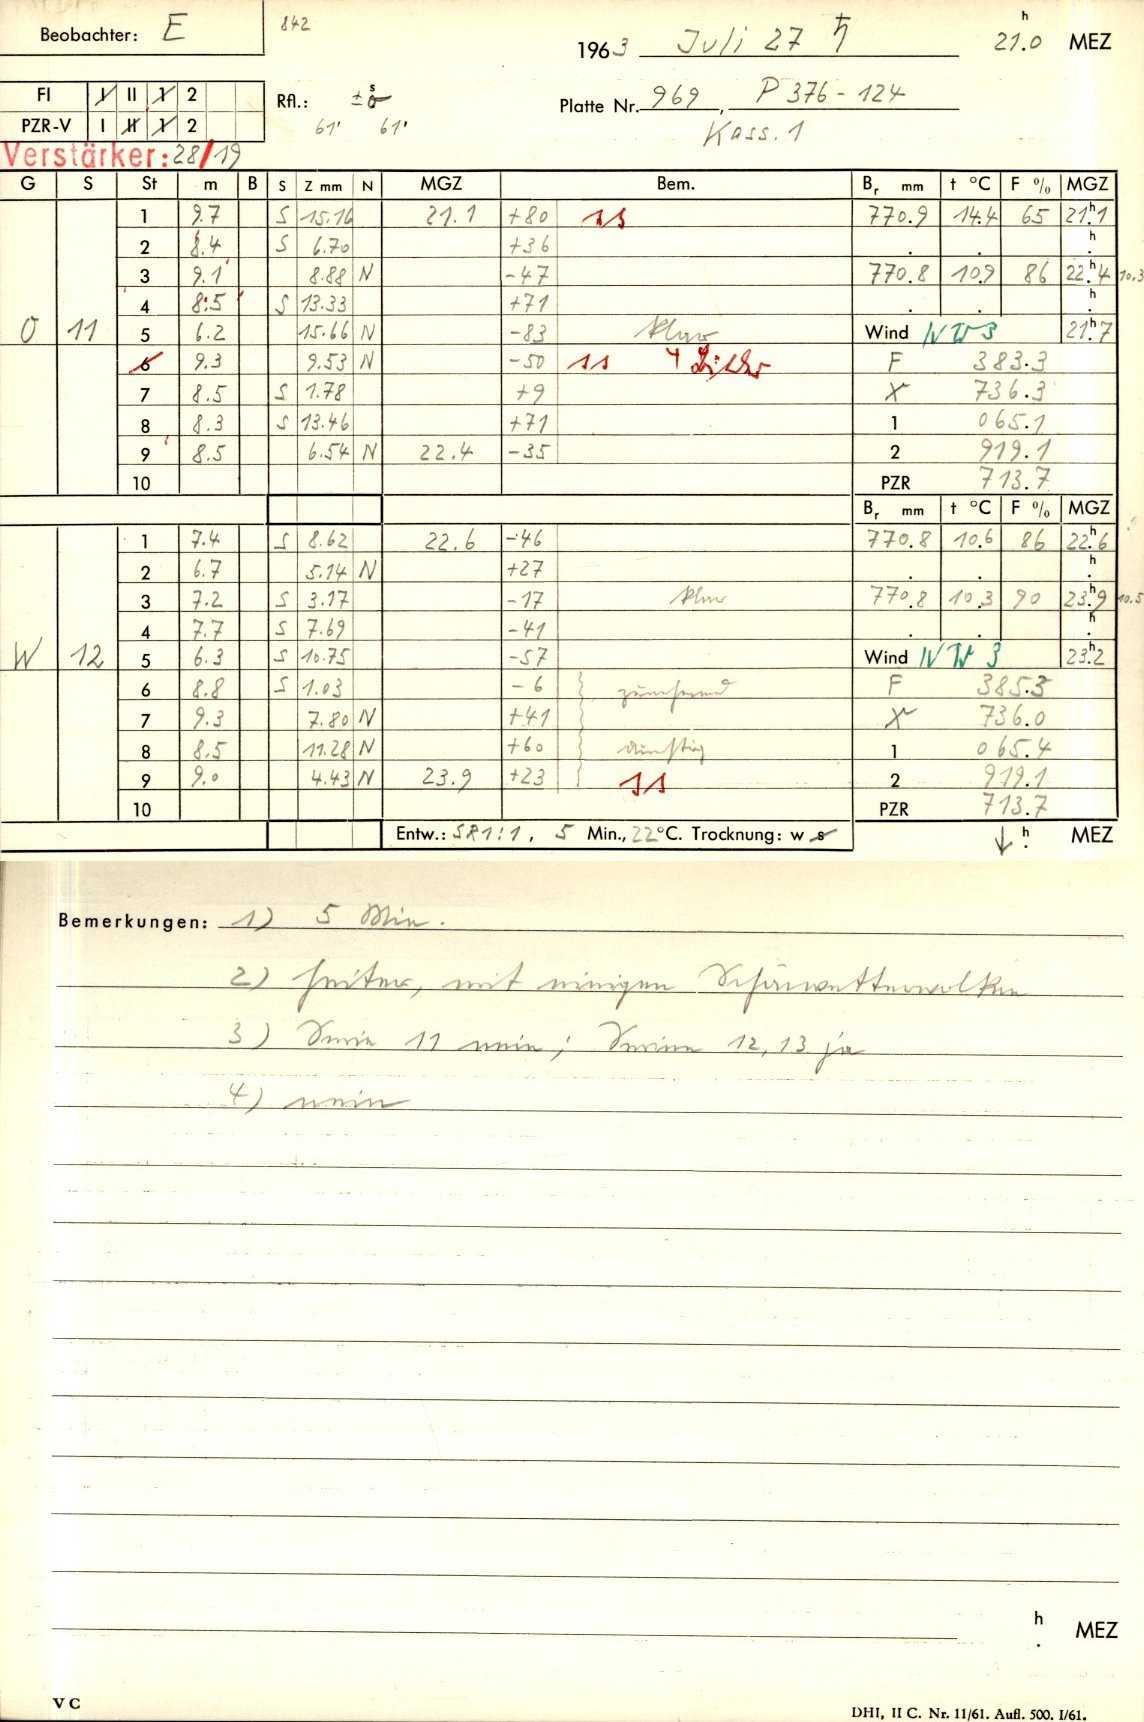 Beobachter: E 842 1963 Juli 27 ♄ 21.0 h MEZ
FI I II 1 2 Rfl.: ± σ s Platte Nr. 969, P 376-124
PZR-V I II 1 2 61' 61' Kass. 1
Verstärker: 28/19
G S St m B S Z mm N MGZ Bem. Br mm t °C F % MGZ
1 9.7 S 15.16 21.1 +80 ss 770.9 14.4 65 21h.1
2 8.4 S 6.70 +36 . . h.
3 9.1 8.88 N -47 770.8 10.9 86 22h.4 10.3
4 8.5 S 13.33 +71 . . h.
O 11 5 6.2 15.66 N -83 klar Wind NW 3 21h.7
6 9.3 9.53 N -50 ss 4 Bilder F 383.3
7 8.5 S 1.78 +9 X 736.3
8 8.3 S 13.46 +71 1 065.1
9 8.5 6.54 N 22.4 -35 2 919.1
10 PZR 713.7
Br mm t °C F % MGZ
1 7.4 S 8.62 22.6 -46 770.8 10.6 86 22h.6
2 6.7 5.14 N +27 . . h.
3 7.2 S 3.17 -17 klar 770.8 10.3 90 23h.9 10.5
4 7.7 S 7.69 -41 . . h.
W 12 5 6.3 S 10.75 -57 Wind NW 3 23h.2
6 8.8 S 1.03 -6 zunehmend F 385.3
7 9.3 7.80 N +41 X 736.0
8 8.5 11.28 N +60 dunstig 1 065.4
9 9.0 4.43 N 23.9 +23 ss 2 919.1
10 PZR 713.7
Entw.: SR 1:1, 5 Min., 22°C. Trocknung: w s ↓ h. MEZ
Bemerkungen: 1) 5 Min.
2) heiter, mit einigen Schönwetterwolken
3) Serie 11 nein; Serien 12, 13 ja
4) nein
h. MEZ
V C DHI, II C. Nr. 11/61. Aufl. 500. I/61.